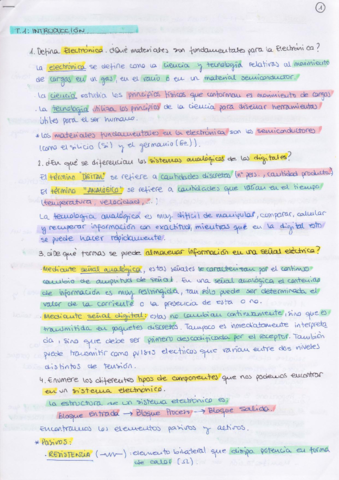 1
T.1: INTRODUCCIÓN
1. Defina Electrónica. ¿Qué materiales son fundamentales para la Electrónica?
La electrónica se define como la ciencia y tecnología relativas al movimiento
de cargas en un gas, en el vacío o en un material semiconductor.
La ciencia estudia los principios físicos que conforman el movimiento de cargas.
La tecnología utiliza los principios de la ciencia para diseñar herramientas
útiles para el ser humano.
Los materiales fundamentales en la electrónica son los semiconductores
(como el silicio (Si) y el germanio (Ge)).
2. ¿En qué se diferencian los sistemas analógicos de los digitales?
El término "DIGITAL" se refiere a cantidades discretas (nº pers., cantidad productos)
El término "ANALÓGICO" se refiere a cantidades que varían en el tiempo
(temperatura, velocidad,
La tecnología analógica es muy difícil de manipular, comparar, calcular
y recuperar información con exactitud, mientras que en la digital esto
se puede hacer rápidamente.
3. ¿De qué formas se puede almacenar información en una señal eléctrica?
Mediante señal analógica, estas señales se caracterizan por el continuo
cambio de amplitud de señal. En una señal analógica el contenido
de información es muy restringido, tan solo puede ser determinado el
valor de la corriente o la presencia de esta o no.
Mediante señal digital, estas no cambian continuamente, sino que es
transmitida en paquetes discretos. Tampoco es inmediatamente interpreta
da, sino que debe ser primero descodificada por el receptor. También
puede transmitir como pulsos eléctricos que varían entre dos niveles
distintos de tensión.
4. Enumere los diferentes tipos de componentes que nos podemos encontrar
en un sistema electrónico.
La estructura de un sistema electrónico es:
Bloque entrada → Bloque Proceso → Bloque Salida
encontramos los elementos pasivos y activos.
* PASIVOS:
- RESISTENCIA elemento bilateral que disipa potencia en forma
de calor (Ω)